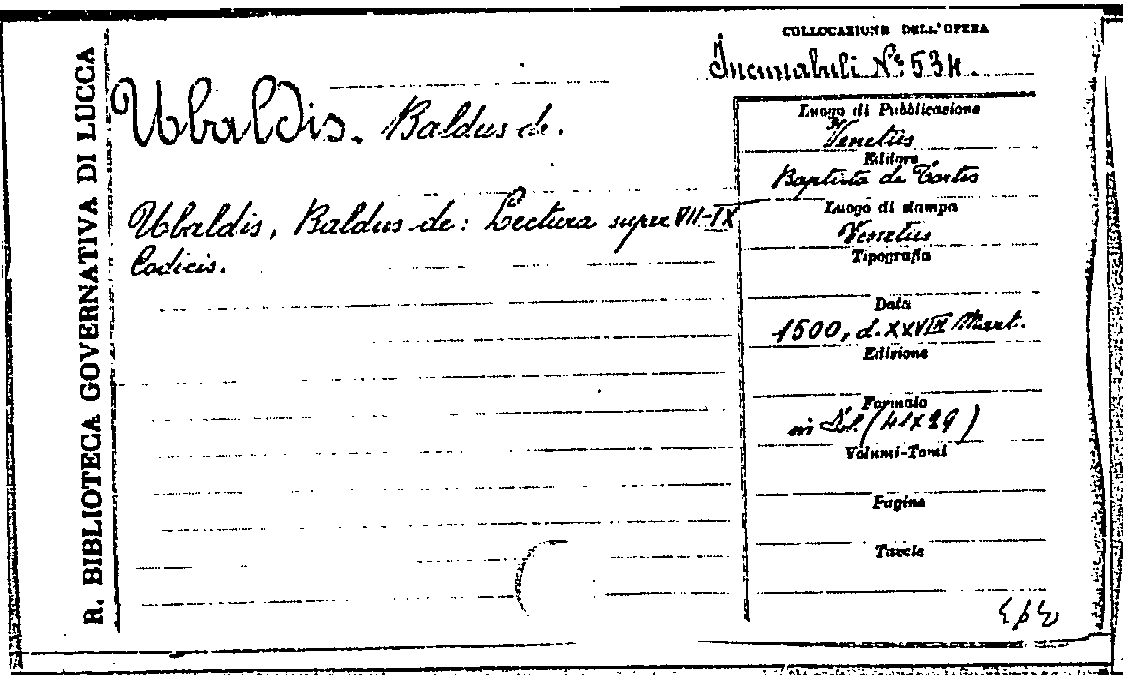 R. BIBLIOTECA GOVERNATIVA DI LUCCA
COLLOCAZIONE DELL'OPERA
Incunabuli Nº 534.
Ubaldis. Baldus de.
Ubaldis, Baldus de: Lectura super VII-IX
Codicis.
Luogo di Pubblicazione
Venetiis
Editore
Baptista de Tortis
Luogo di stampa
Venetiis
Tipografia
Data
1500, d. XXVIII Mart.
Edizione
Formato
in fol. (41x29)
Volumi-Tomi
Pagine
Tavole